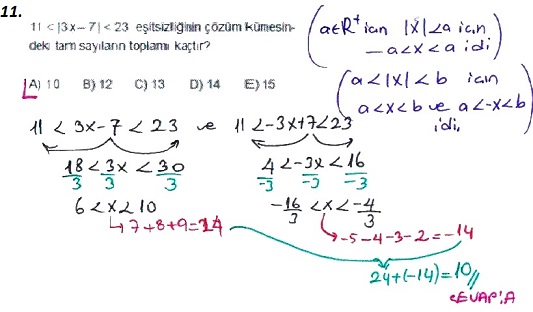 11.
11 < |3x - 7| < 23 eşitsizliğinin çözüm kümesin-
deki tam sayıların toplamı kaçtır?
A) 10 B) 12 C) 13 D) 14 E) 15
a∈R⁺ için |x|<a için
-a<x<a idi
a<|x|<b için
a<x<b ve a<-x<b
idi.
11 < 3x-7 < 23 ve 11<-3x+7<23
18/3 < 3x/3 < 30/3 4/-3 < -3x/-3 < 16/-3
6<x<10 -16/3 < x < -4/3
7+8+9=24 -5-4-3-2=-14
24+(-14)=10//
CEVAP:A